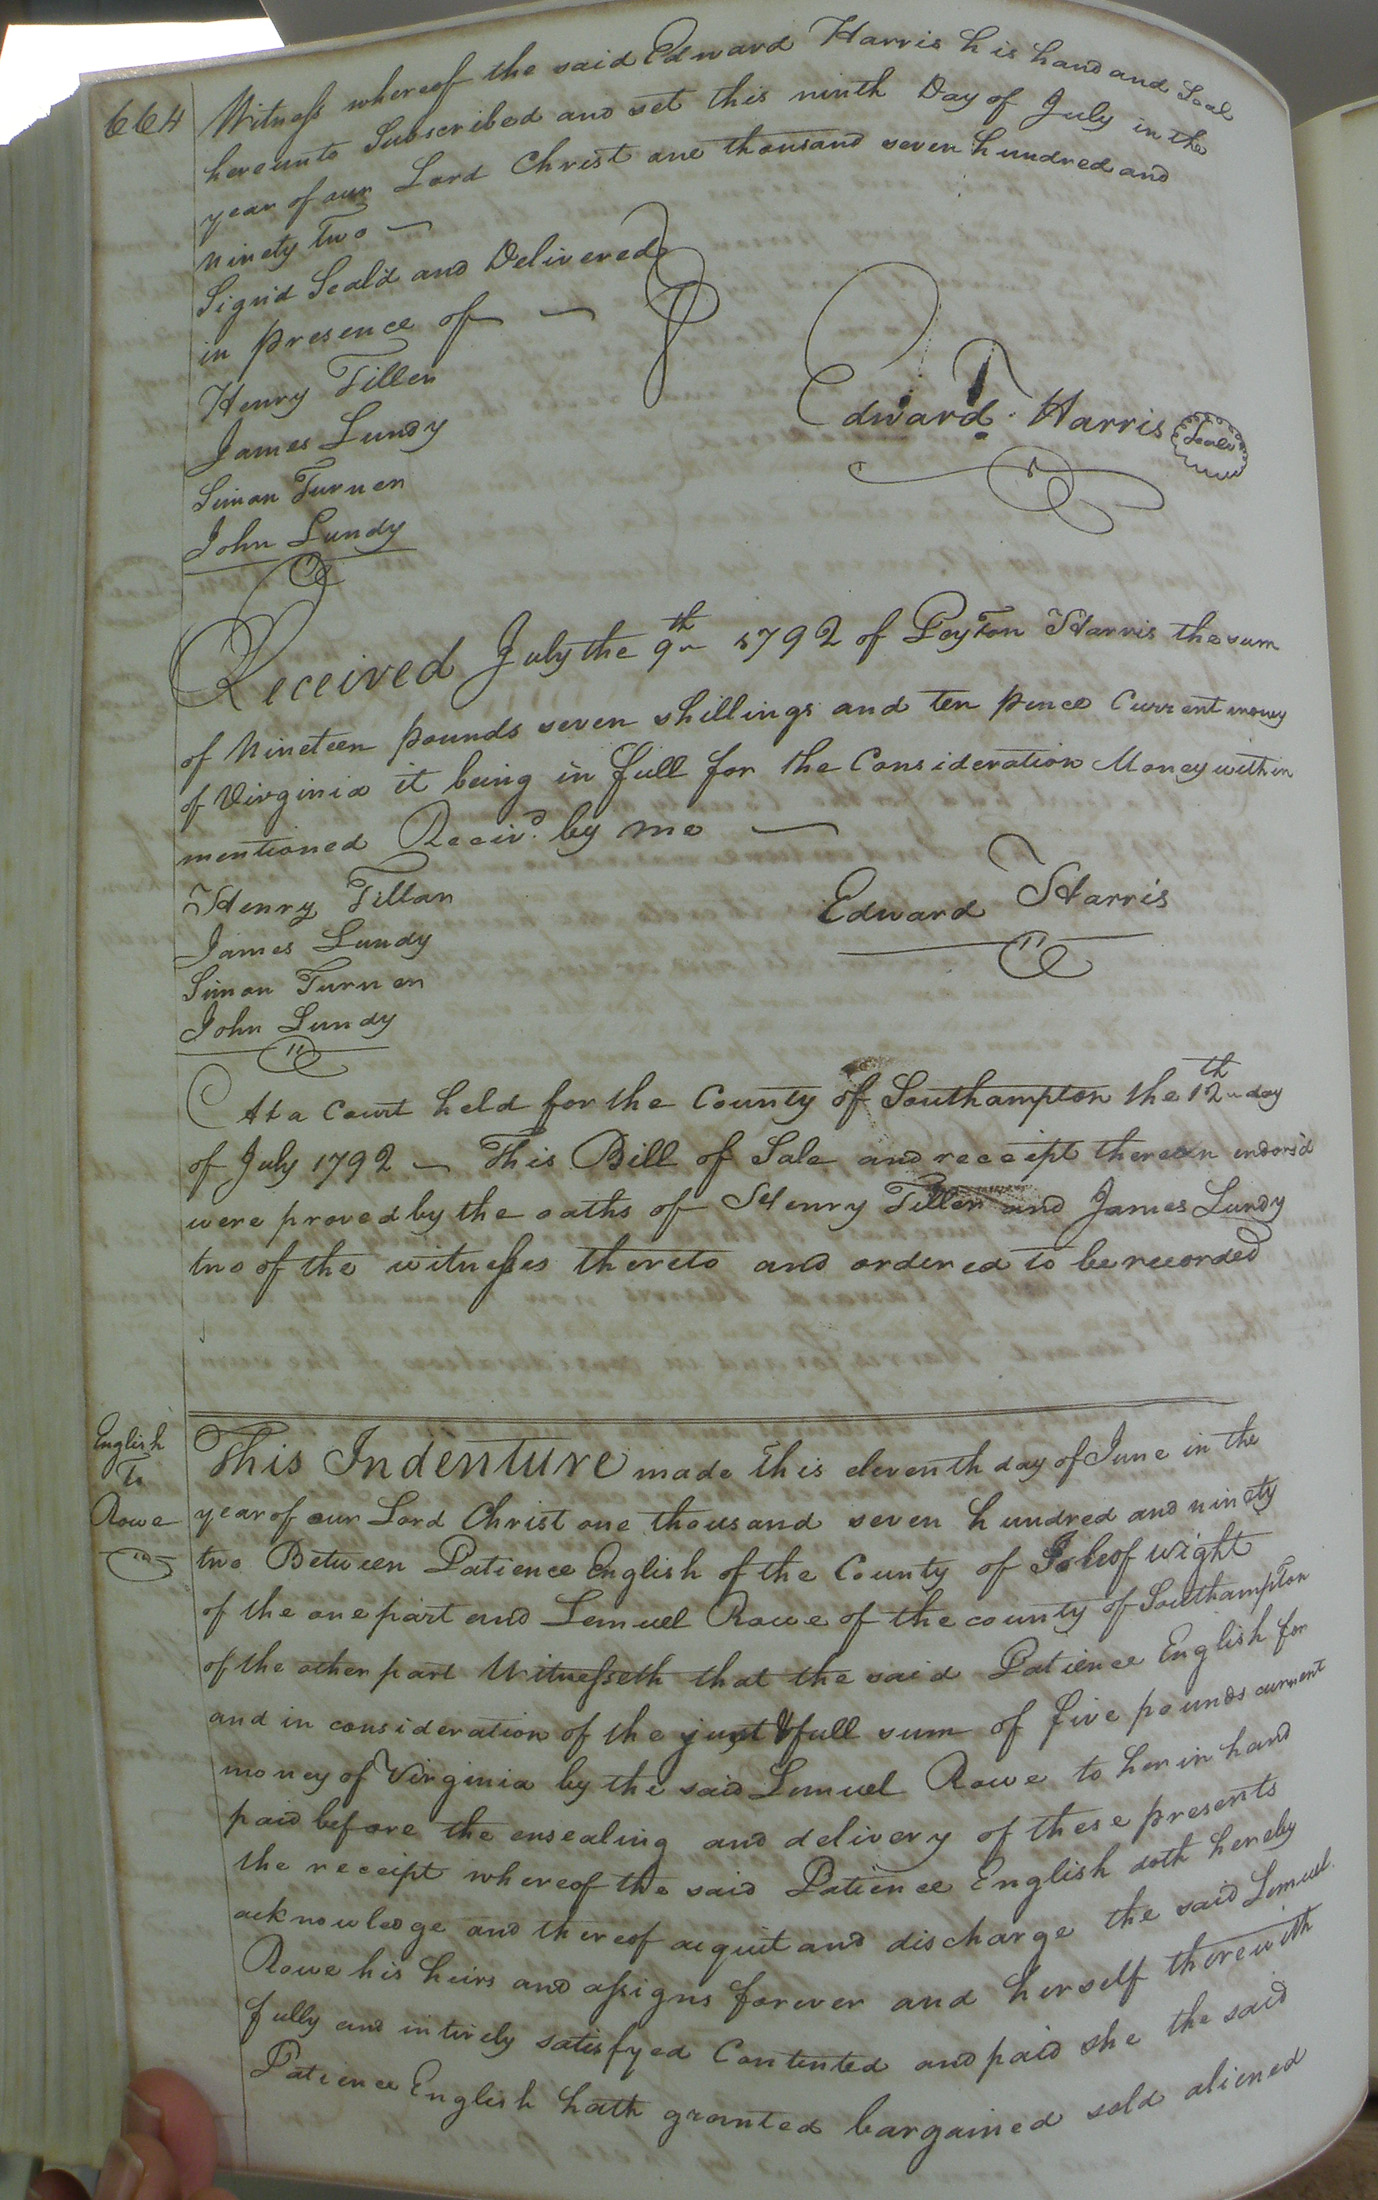 664
Witness whereof the said Edward Harris his hand and Seal
hereunto Subscribed and set this ninth Day of July in the
year of our Lord Christ one thousand seven hundred and
ninety two —
Sign'd Seal'd and Delivered
in presence of —
Henry Tiller
James Lundy
Simon Turner
John Lundy
Edward Harris Seal
Received July the 9th 1792 of Peyton Harris the sum
of Nineteen pounds seven shillings and ten pence Current money
of Virginia it being in full for the Consideration Money within
mentioned Receiv'd by me —
Henry Tillar
James Lundy
Simon Turner
John Lundy
Edward Harris
At a Court held for the County of Southampton the 12th day
of July 1792 — This Bill of Sale and receipt thereon endors'd
were proved by the oaths of Henry Tiller and James Lundy
two of the witnesses thereto and ordered to be recorded
English
To
Rowe
This Indenture made this eleventh day of June in the
year of our Lord Christ one thousand seven hundred and ninety
two Between Patience English of the County of Isle of Wight
of the one part and Lemuel Rowe of the county of Southampton
of the other part Witnesseth that the said Patience English for
and in consideration of the just & full sum of five pounds current
money of Virginia by the said Lemuel Rowe to her in hand
paid before the ensealing and delivery of these presents
the receipt whereof the said Patience English doth hereby
acknowledge and thereof acquit and discharge the said Lemuel
Rowe his heirs and assigns forever and herself therewith
fully and intirely satisfyed Contented and paid she the said
Patience English hath granted bargained sold aliened